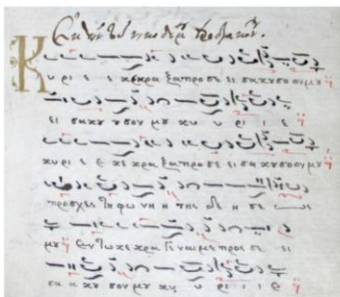 Κυ ρι ε ε κεκρα ξα προσε ει σακȣσονμȣ
ει σακȣσον μȣ κυ υ ρι ι ε
κυρι ε ε κε κρα ξαπροσε ει σακȣσονμȣ
προσχες τη φω νη η της δε η σε
μȣ Εν τω κε κρα γε ναι με προς σε ει
σα α κȣ σον μȣ κυ υ ρι ι ε